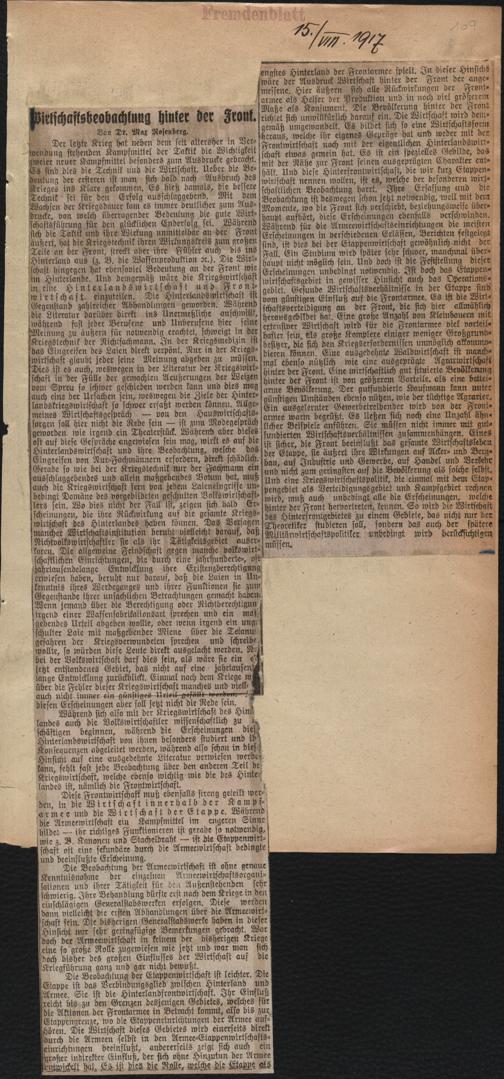 Fremdenblatt
15./VIII. 1917
109
Wirtschaftsbeobachtung hinter der Front.
Von Dr. Max Rosenberg.
Der letzte Krieg hat neben dem seit altersher in Ver-
wendung stehenden Kampfmittel der Taktik die Wichtigkeit
zweier neuer Kampfmittel besonders zum Ausdrucke gebracht.
Es sind dies die Technik und die Wirtschaft. Ueber die Be-
deutung der ersteren ist man sich bald nach Ausbruch des
Krieges ins Klare gekommen. Es hieß damals, die bessere
Technik sei für den Erfolg ausschlaggebend. Mit dem
Wachsen der Kriegsdauer kam es immer deutlicher zum Aus-
drucke, von welch überragender Bedeutung die gute Wirt-
schaftsführung für den glücklichen Enderfolg sei. Während
sich die Taktik und ihre Wirkung unmittelbar an der Front
äußert, hat die Kriegstechnik ihren Wirkungskreis zum großen
Teile an der Front, streckt aber ihre Fühler auch bis ins
Hinterland aus (z. B. die Waffenproduktion 2c.). Die Wirt-
schaft hingegen hat ebensoviel Bedeutung an der Front wie
im Hinterland. Und demgemäß wäre die Kriegswirtschaft
in eine Hinterlandswirtschaft und Front-
wirtschaft einzuteilen. Die Hinterlandswirtschaft ist
Gegenstand zahlreicher Abhandlungen geworden. Während
die Literatur darüber direkt ins Unermeßliche anschwillt,
während fast jeder Berufene und Unberufene hier seine
Meinung zu äußern für notwendig erachtet, schweigt in der
Kriegstechnik der Nichtfachmann. In der Kriegsmedizin ist
das Eingreifen des Laien direkt verpönt. Nur in der Kriegs-
wirtschaft glaubt jeder seine Meinung abgeben zu müssen.
Dies ist es auch, weswegen in der Literatur der Kriegswirt-
schaft in der Fülle der gemachten Aeußerungen der Weizen
vom Spreu so schwer geschieden werden kann und dies mag
auch eine der Ursachen sein, weswegen die Ziele der Hinter-
landskriegswirtschaft so schwer erfaßt werden können. Allge-
meines Wirtschaftsgespräch — von den Hauswirtschafts-
sorgen soll hier nicht die Rede sein — ist zum Modegespräch
geworden wie irgend ein Theaterstück. Während aber dieses
oft auf diese Gespräche angewiesen sein mag, wirkt es auf die
Hinterlandswirtschaft und ihre Beobachtung, welche das
Eingreifen von Nur-Fachmännern erfordern, direkt schädlich.
Gerade so wie bei der Kriegstechnik nur der Fachmann ein
ausschlaggebendes und allein maßgebendes Votum hat, muß
auch die Kriegswirtschaft fern von jedem Laieneingriffe un-
bedingt Domäne des vorgebildeten geschulten Volkswirtschaft-
lers sein. Wo dies nicht der Fall ist, zeigen sich bald Er-
scheinungen, die ihre Rückwirkung auf die gesamte Kriegs-
wirtschaft des Hinterlandes haben können. Das Versagen
mancher Wirtschaftsinstitution beruht vielleicht darauf, daß
Nichtvolkswirtschaftler sie als ihr Tätigkeitsgebiet auser-
koren. Die allgemeine Feindschaft gegen manche volkswirt-
schaftlichen Einrichtungen, die durch eine jahrhunderte-, oft
jahrtausendelange Entwicklung ihre Existenzberechtigung
erwiesen haben, beruht nur darauf, daß die Laien in Un-
kenntnis ihres Werdeganges und ihrer Funktionen sie zum
Gegenstande ihrer unsachlichen Betrachtungen gemacht haben.
Wenn jemand über die Berechtigung oder Nichtberechtigung
irgend einer Waffenfabrikationsart sprechen und ein maß-
gebendes Urteil abgeben wollte, oder wenn irgend ein unge-
schulter Laie mit maßgebender Miene über die Tetanus-
gefahren der Kriegsverwundeten sprechen und schreiben
wollte, so würden diese Leute direkt ausgelacht werden. Nur
bei der Volkswirtschaft darf dies sein, als wäre sie ein erst
jetzt entstandenes Gebiet, das nicht auf eine jahrtausende-
lange Entwicklung zurückblickt. Einmal nach dem Kriege wird
über die Fehler dieser Kriegswirtschaft manches und vielleicht
auch nicht immer ein günstiges Urteil gefällt werden,
diesen Erscheinungen aber soll jetzt nicht die Rede sein.
Während sich also mit der Kriegswirtschaft des Hinter-
landes auch die Volkswirtschaftler wissenschaftlich zu be-
schäftigen beginnen, während die Erscheinungen dieser
Hinterlandswirtschaft von ihnen besonders studiert und ihre
Konsequenzen abgeleitet werden, während also schon in dieser
Hinsicht auf eine ausgedehnte Literatur verwiesen werden
kann, fehlt fast jede Beobachtung über den anderen Teil der
Kriegswirtschaft, welche ebenso wichtig wie die des Hinter-
landes ist, nämlich die Frontwirtschaft.
Diese Frontwirtschaft muß ebenfalls streng geteilt wer-
den, in die Wirtschaft innerhalb der Kampf-
armee und die Wirtschaft der Etappe. Während
die Armeewirtschaft ein Kampfmittel im engeren Sinne
bildet — ihr richtiges Funktionieren ist gerade so notwendig,
wie z. B. Kanonen und Stacheldraht — ist die Etappenwirt-
schaft oft eine sekundäre durch die Armeewirtschaft bedingte
und beeinflußte Erscheinung.
Die Beobachtung der Armeewirtschaft ist ohne genaue
Kenntnisnahme der einzelnen Armeewirtschaftsorgani-
sationen und ihrer Tätigkeit für den Außenstehenden sehr
schwierig. Ihre Behandlung dürfte erst nach dem Kriege in den
einschlägigen Generalstabswerken erfolgen. Diese werden
dann vielleicht die ersten Abhandlungen über die Armeewirt-
schaft sein. Die bisherigen Generalstabswerke haben in dieser
Hinsicht nur sehr geringfügige Bemerkungen gebracht. War
doch der Armeewirtschaft in keinem der bisherigen Kriege
eine so große Rolle zugewiesen wie jetzt und war man sich
doch bisher des großen Einflusses der Wirtschaft auf die
Kriegführung ganz und gar nicht bewußt.
Die Beobachtung der Etappenwirtschaft ist leichter. Die
Etappe ist das Verbindungsglied zwischen Hinterland und
Armee. Sie ist die Hinterlandfrontwirtschaft. Ihr Einfluß
reicht bis zu den Grenzen desjenigen Gebietes, welches für
die Aktionen der Frontarmee in Betracht kommt, also bis zur
Etappengrenze, wo die Etappeneinrichtungen der Armee auf-
hören. Die Wirtschaft dieses Gebietes wird einerseits direkt
durch die Armeen selbst in den Armee-Etappenwirtschafts-
einrichtungen beeinflußt, andererseits zeigt sich auch ein
großer indirekter Einfluß, der sich ohne Hinzutun der Armee
entwickelt hat. Es ist dies die Rolle, welche die Etappe als
engstes Hinterland der Frontarmee spielt. In dieser Hinsicht
wäre der Ausdruck Wirtschaft hinter der Front der ange-
messene. Hier äußern sich alle Rückwirkungen der Front-
armee als Helfer der Produktion und in noch viel größerem
Maße als Konsument. Die Bevölkerung hinter der Front
richtet sich unwillkürlich darauf ein. Die Wirtschaft wird dem-
gemäß umgewandelt. Es bildet sich so eine Wirtschaftsform
heraus, welche ihr eigenes Gepräge hat und weder mit der
Frontwirtschaft noch mit der eigentlichen Hinterlandswirt-
schaft etwas gemein hat. Es ist ein spezielles Gebilde, das
mit der Nähe zur Front seinen ausgeprägten Charakter ent-
hält. Und diese Hinterfrontwirtschaft, die wir kurz Etappen-
wirtschaft nennen wollen, ist es, welche der besonderen wirt-
schaftlichen Beobachtung harrt. Ihre Erfassung und die
Beobachtung ist deswegen schon jetzt notwendig, weil mit dem
Momente, wo die Front sich verschiebt, beziehungsweise über-
haupt aufhört, diese Erscheinungen ebenfalls verschwinden.
Während für die Armeewirtschaftseinrichtungen die meisten
Erscheinungen in verschiedenen Erlässen, Berichten festgelegt
sind, ist dies bei der Etappenwirtschaft gewöhnlich nicht der
Fall. Ein Studium wird später sehr schwer, manchmal über-
haupt nicht möglich sein. Und doch ist die Feststellung dieser
Erscheinungen unbedingt notwendig. Ist doch das Etappen-
wirtschaftsgebiet in gewisser Hinsicht auch das Operations-
gebiet. Gesunde Wirtschaftsverhältnisse in der Etappe sind
vom günstigen Einfluß auf die Frontarmee. Es ist die Wirt-
schaftsverteidigung an der Front, die sich hier allmählich
herausgebildet hat. Eine große Anzahl von Kleinbauern mit
extensiver Wirtschaft wird für die Frontarmee viel vorteil-
hafter sein, als große Komplexe einiger weniger Großgrund-
besitzer, die sich den Kriegserfordernissen unmöglich akkomo-
dieren können. Eine ausgedehnte Waldwirtschaft ist manch-
mal ebenso nützlich wie eine ausgeprägte Agrarwirtschaft
hinter der Front. Eine wirtschaftlich gut situierte Bevölkerung
hinter der Front ist von größerem Vorteile, als eine bäuer-
liche Bevölkerung. Der gutfundierte Kaufmann kann unter
günstigen Umständen ebenso nützen, wie der tüchtige Agrarier.
Ein ausgelernter Gewerbetreibender wird von der Front-
armee warm begrüßt. Es ließen sich noch eine Anzahl ähn-
licher Beispiele anführen. Sie müssen nicht immer mit gut-
fundierten Wirtschaftsverhältnissen zusammenhängen. Eines
ist sicher, die Front beeinflußt das gesamte Wirtschaftsleben
der Etappe, sie äußert ihre Wirkungen auf Acker- und Berg-
bau, auf Industrie und Gewerbe, auf Handel und Verkehr
und nicht zum geringsten auf die Bevölkerung als solche selbst.
Und eine Kriegswirtschaftspolitik, die einmal mit dem Etap-
pengebiet als Verteidigungsgebiet und Kampfgebiet rechnen
wird, muß auch unbedingt alle die Erscheinungen, welche
hinter der Front hervortreten, kennen. So wird die Wirtschaft
des Hinterfrontgebietes zu einem Gebiete, das nicht nur der
Theoretiker studieren soll, sondern das auch der spätere
Militärwirtschaftspolitiker unbedingt wird berücksichtigen
müssen.